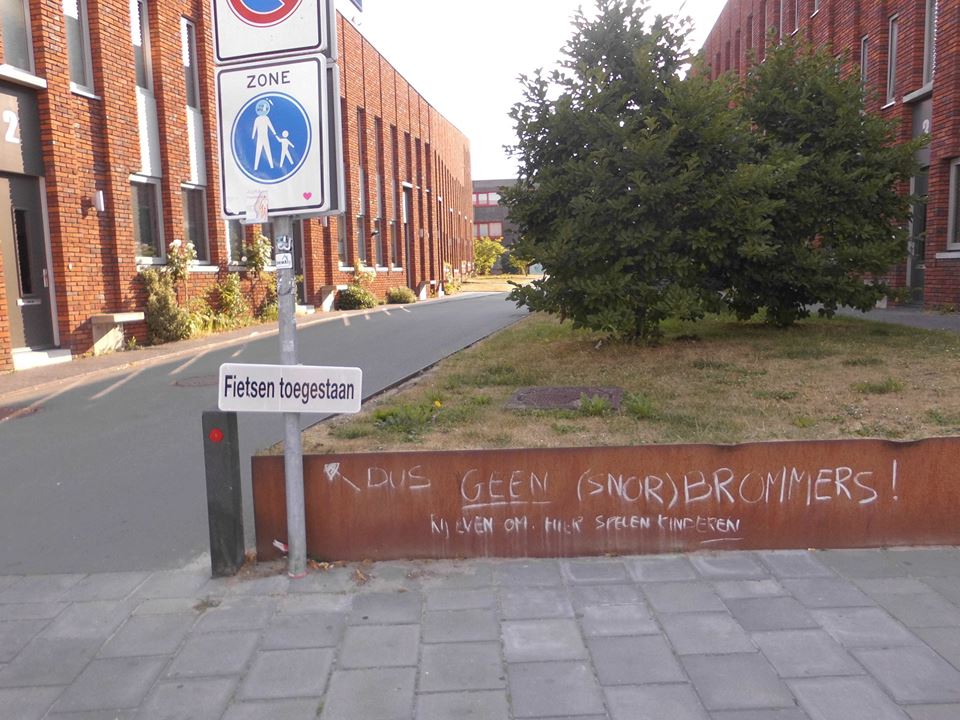 ZONE
2
Fietsen toegestaan
DUS GEEN (SNOR)BROMMERS!
RIJ EVEN OM. HIER SPELEN KINDEREN